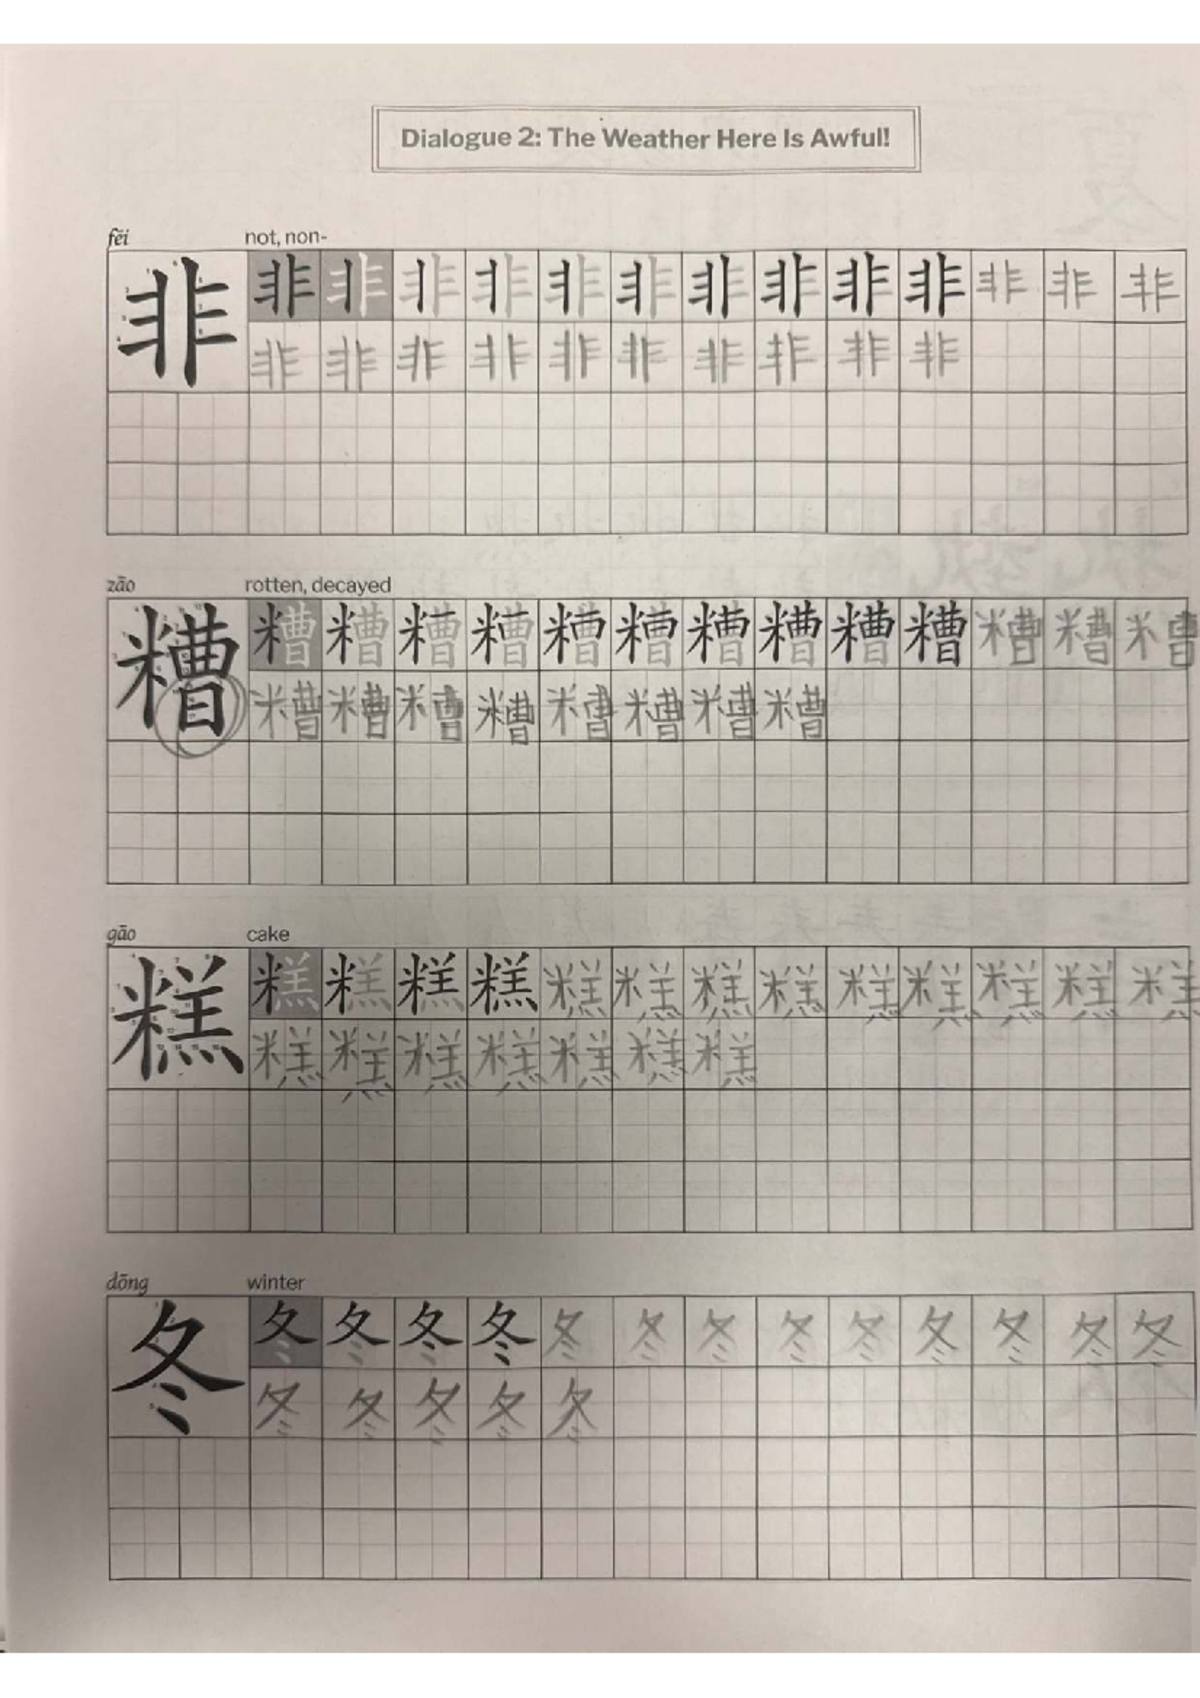 Dialogue 2: The Weather Here Is Awful!
fēi not, non-
非 非 非 非 非 非 非 非 非 非 非 非 非 非
非 非 非 非 非 非 非 非 非 非
zāo rotten, decayed
糟 糟 糟 糟 糟 糟 糟 糟 糟 糟 糟 糟 糟 糟
糟 糟 糟 糟 糟 糟 糟 糟
gāo cake
糕 糕 糕 糕 糕 糕 糕 糕 糕 糕 糕 糕 糕 糕
糕 糕 糕 糕 糕 糕 糕
dōng winter
冬 冬 冬 冬 冬 冬 冬 冬 冬 冬 冬 冬 冬 冬
冬 冬 冬 冬 冬